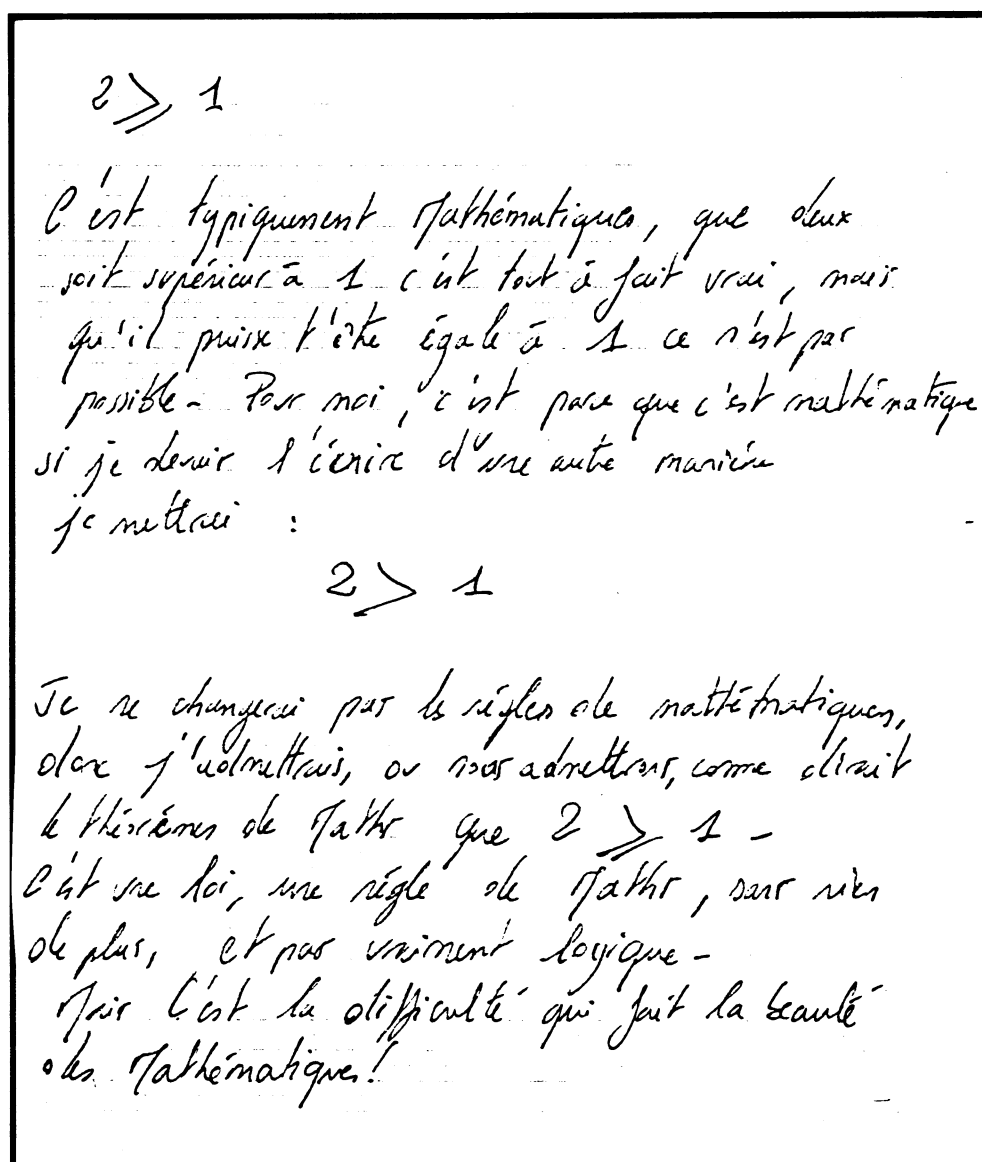 2 ⩾ 1
C'est typiquement Mathématiques, que deux
soit supérieur à 1 c'est tout à fait vrai, mais
qu'il puisse l'être égale à 1 ce n'est pas
possible - Pour moi, c'est parce que c'est mathématique
si je devais l'écrire d'une autre manière
je mettrai :
2 > 1
Je ne changerai pas les règles de mathématiques,
donc j'admettrais, ou nous admettrons, comme dirait
le théorèmes de Maths que 2 ⩾ 1 -
C'est une loi, une règle de Maths, sans rien
de plus, et pas vraiment logique -
Mais c'est la difficulté qui fait la beauté
des Mathématiques!